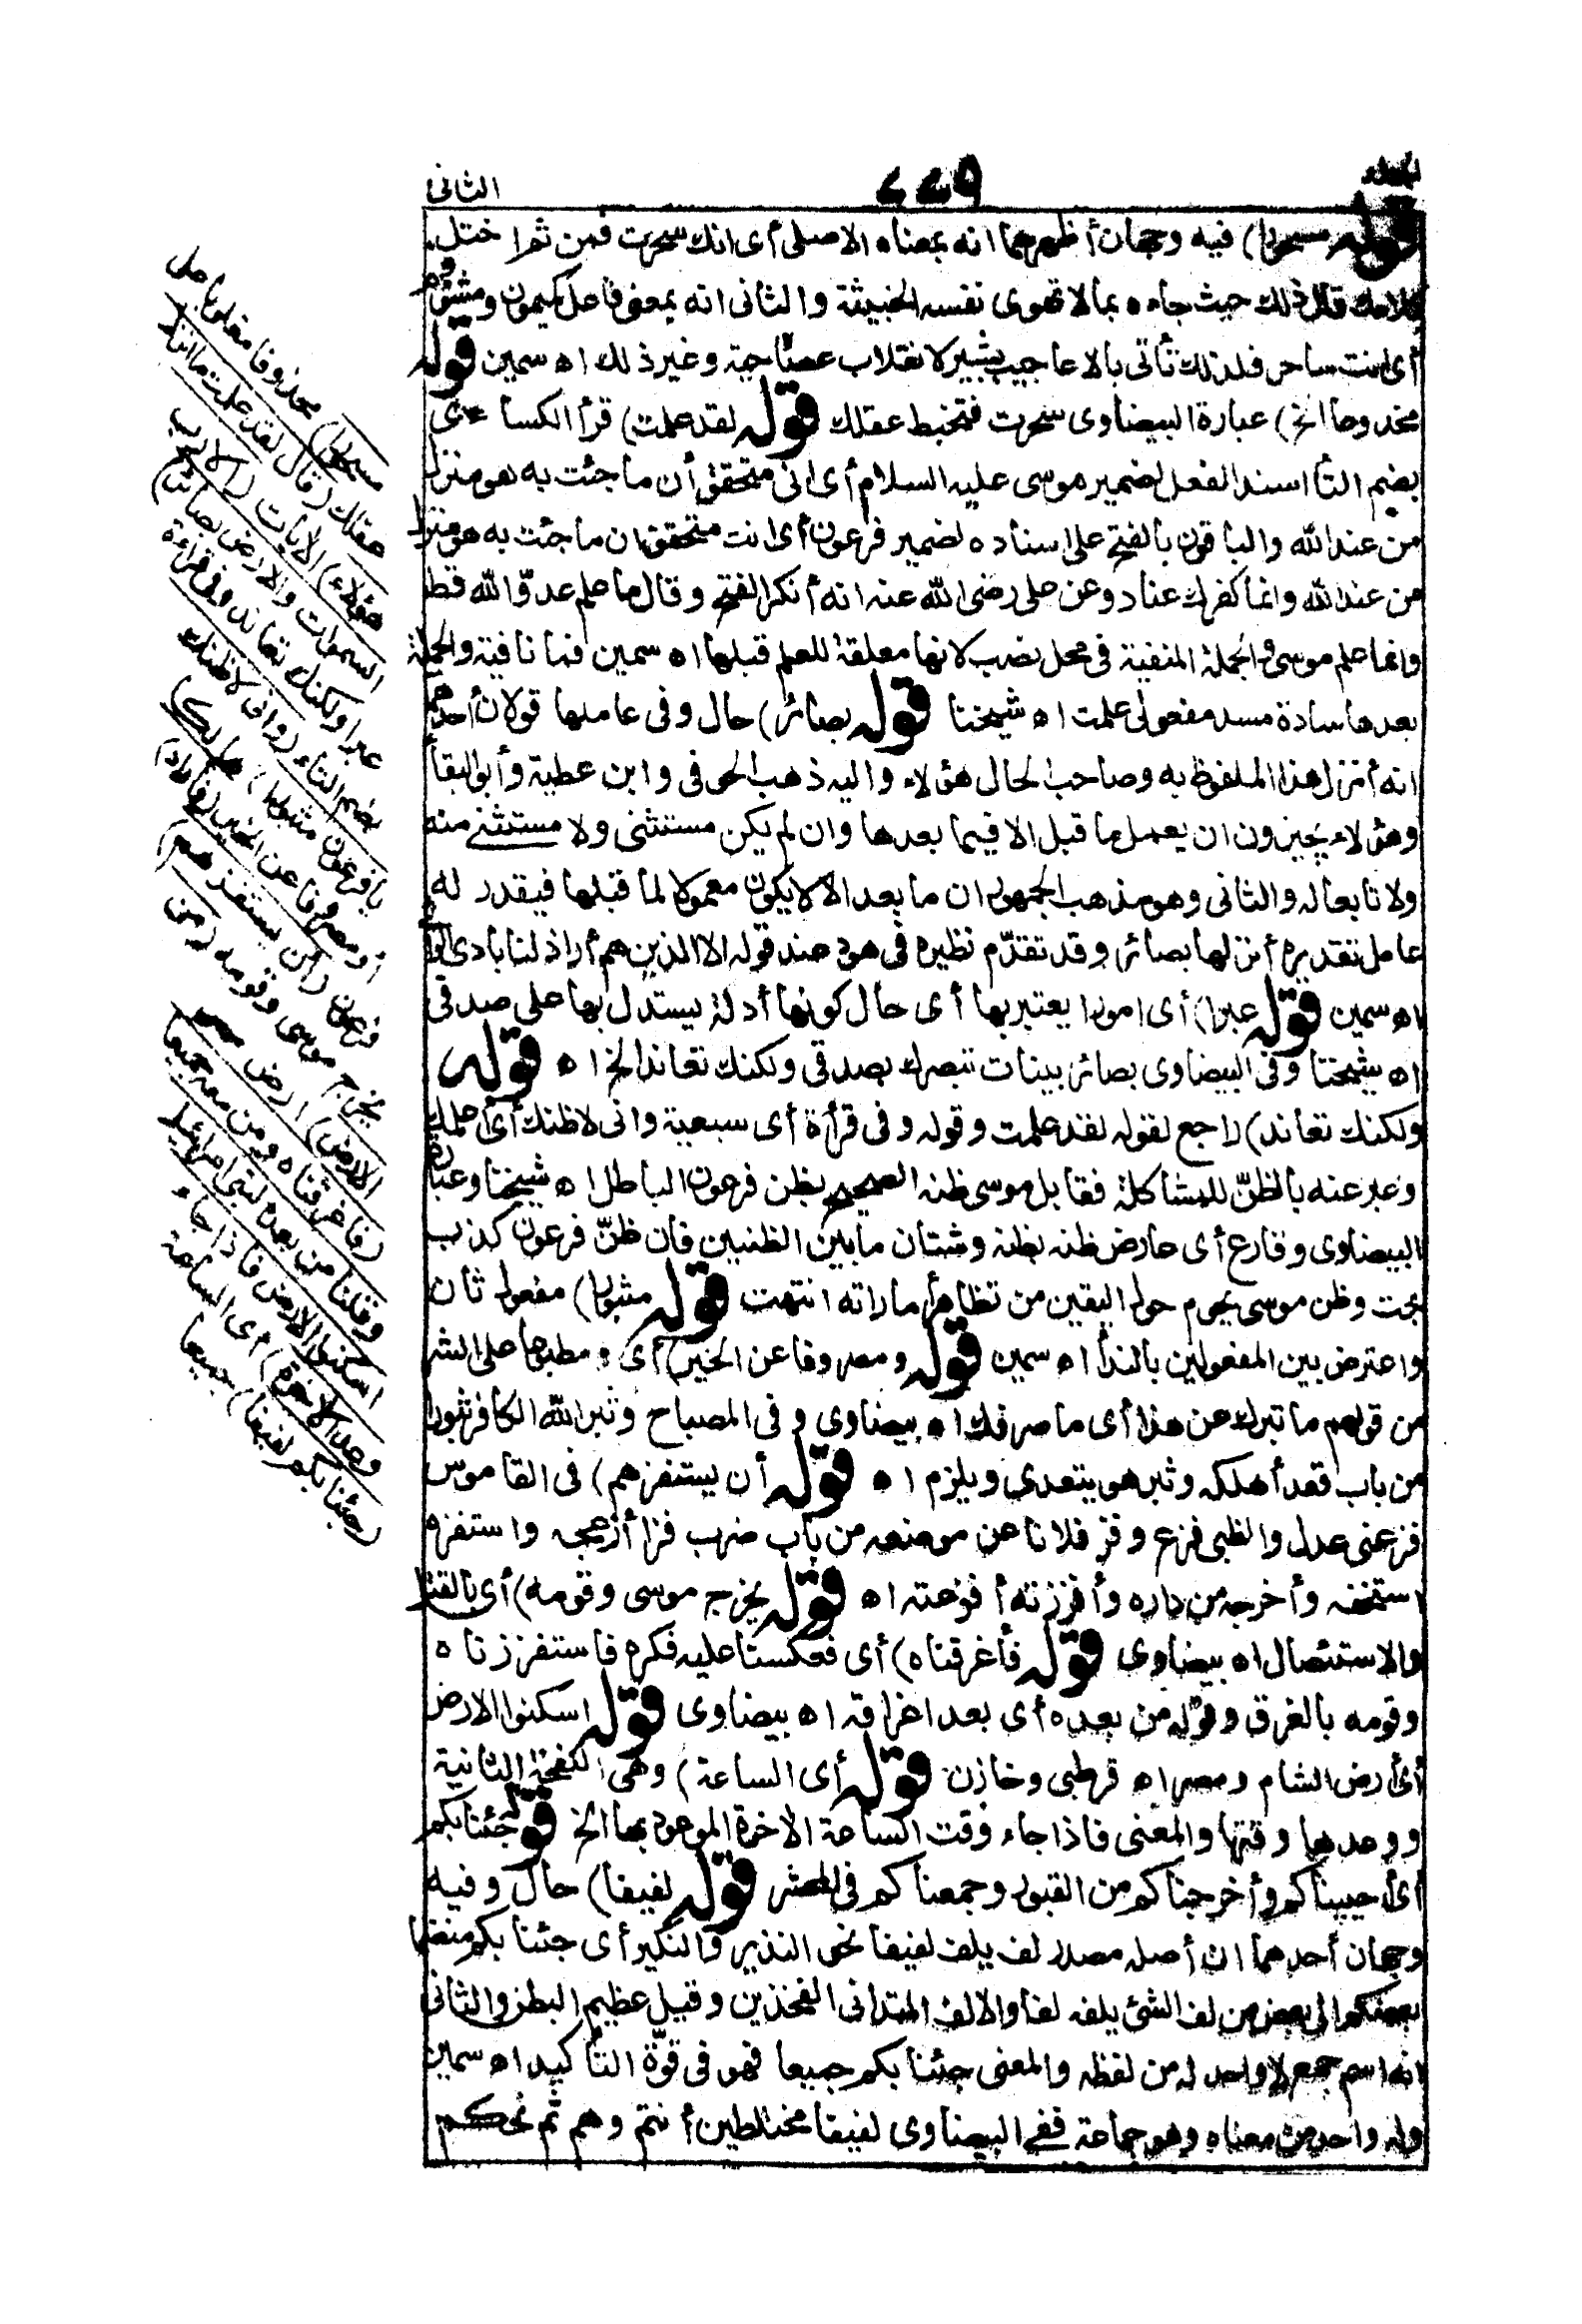 الجلد
٦٦٩
الثانى
قوله مسحورا) فيه وجهان أظهرهما انه بمعناه الاصلى أى انك سحرت فمن ثم اختل
كلامك قال ذلك حيث جاءه بما لا تهوى نفسه الخبيثة والثانى انه بمعنى فاعل كميمون ومشؤم
أى انت ساحر فلذلك تأتى بالاعاجيب يشير لانقلاب عصاحية وغير ذلك اه سمين قوله
مخدوعا الخ) عبارة البيضاوى سحرت فتخبط عقلك قوله لقد علمت) قرأ الكساءى
بضم التا اسند الفعل لضمير موسى عليه السلام أى انى متحقق أن ما جئت به هو منزل
من عند الله والباقون بالفتح على اسناده لضمير فرعون أى انت متحقق ان ما جئت به هو منزل
من عند الله وانما كفرك عناد وعن على رضى الله عنه انه أنكر الفتح وقال ما علم عدوّ الله قط
وانما علم موسى والجملة المنفية فى محل نصب لانها معلقة للعلم قبلها اه سمين فما نافية والجملة
بعدها سادة مسد مفعولى علمت اه شيخنا قوله بصائر) حال وفى عاملها قولان أحدهما
انه أنزل هذا الملفوظ به وصاحب الحال هؤلاء واليه ذهب الحوفى وابن عطية وأبو البقأ
وهؤلاء يجيزون ان يعمل ما قبل الا فيما بعدها وان لم يكن مستثنى ولا مستثنى منه
ولا تابعا له والثانى وهو مذهب الجمهور ان ما بعد الا لا يكون معمولا لما قبلها فيقدر له
عامل تقديره أنزلها بصائر وقد تقدّم نظيره فى هود عند قوله الا الذين هم أراذلنا بادى الرأ
اه سمين قوله عبرا) أى امورا يعتبر بها أى حال كونها أدلة يستدل بها على صدقى
اه شيخنا وفى البيضاوى بصائر بينات تبصرك بصدقى ولكنك تعاند الخ اه قوله
ولكنك تعاند) راجع لقوله لقد علمت وقوله وفى قرأة أى سبعية وانى لاظنك أى أعلمك
وعبر عنه بالظنّ للمشاكلة فقابل موسى ظنه الصحيح بظن فرعون الباطل اه شيخنا وعبارة
البيضاوى وقارع أى عارض ظنه بظنه وشتان ما بين الظنين فان ظنّ فرعون كذب
بحت وظن موسى يحوم حول اليقين من تظاهر أماراته انتهت قوله مثبورا) مفعول ثان
واعترض بين المفعولين بالندأ اه سمين قوله ومصروفا عن الخير) أى ومطبوعا على الشر
من قولهم ما ثبرك عن هذا أى ما صرفك اه بيضاوى وفى المصباح وثبر الله الكافر ثبورا
من باب قعد أهلكه وثبر هو يتعدى ويلزم اه قوله أن يستفزهم) فى القاموس
فزعنى عدل والظبى فزع وفز فلانا عن موضعه من باب ضرب فزا أزعجه واستفزه
استخفه وأخرجه من داره وأفززته أفزعته اه قوله يخرج موسى وقومه) أى بالقتل
والاستئصال اه بيضاوى قوله فأغرقناه) أى فعكسنا عليه فكره فاستفززناه
وقومه بالغرق وقوله من بعده أى بعد اغراقه اه بيضاوى قوله اسكنوا الارض
أى أرض الشام ومصر اه قرطبى وخازن قوله أى الساعة) وهى النفخة الثانية
ووعدها وقتها والمعنى فاذا جاء وقت الساعة الاخرة الموعود بها الخ قوله جئنا بكم
أى أحييناكم وأخرجناكم من القبور وجمعناكم فى المحشر قوله لفيفا) حال وفيه
وجهان أحدهما ان أصله مصدر لف يلف لفيفا نحو النذير والنكير أى جئنا بكم منضما
بعضكم الى بعض من لف الشئ يلفه لفا والالف المتدانى الفخذين وقيل عظيم البطن والثانى
انه اسم جمع لا واحد له من لفظه والمعنى جئنا بكم جميعا فهو فى قوّة التأكيد اه سمين
وله واحد من معناه وهو جماعة ففى البيضاوى لفيفا مختلطين أنتم وهم ثم نحكم
مسحورا) مخدوعا مغلوبا على
عقلك (قال لقد علمت ما انزل
هؤلاء) الايات (الا رب
السموات والارض بصائر)
عبرا ولكنك تعاند وفى قراءة
بضم التاء (وانى لاظنك
يا فرعون مثبورا) هالكا
أو مصروفا عن الخير (فأراد)
فرعون (أن يستفزهم)
يخرج موسى وقومه (من
الارض) ارض مصر
(فاغرقناه ومن معه جميعا
وقلنا من بعده لبنى اسرائيل
اسكنوا الارض فاذا جاء
وعد الاخرة) أى الساعة
(جئنا بكم لفيفا) جميعا